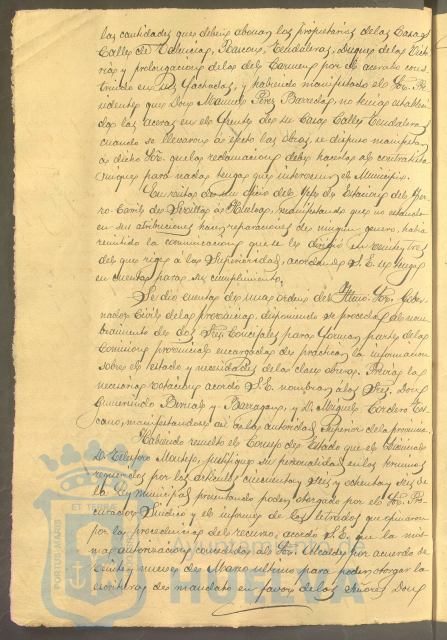 las cantidades que deben abonar los propietarios de las Casas
Calles de Valencia, Rascon, Tendaleras, Duque de la Victo-
ria y prolongacion de la del Carmen por el acerado cons-
truido en sus fachadas, y habiendo manifestado el Sr. Pre-
sidente que Don Manuel Perez Barreda, no tenia estableci-
das las aceras en el frente de su Casa Calle Tendaleras
cuando se llevaron á efecto las obras, se dispuso manifestar
á dicho Sr. que la reclamacion debe hacerla al contratista
sin que para nada tenga que intervenir el Municipio.
En vista de un oficio del Jefe de Estacion del Fer-
ro-Carril de Sevilla á Huelva, manifestando que no estando
en sus atribuciones hacer reparaciones de ningun genero habia
remitido la comunicacion que se le dirigió en veinte y tres
del que rige á la Superioridad, acordando S.E. se tenga
en cuenta para su cumplimiento.
Se dió cuenta de una órden del Iltmo. Sr. Gober-
nador Civil de la provincia, disponiendo se proceda al nom-
bramiento de dos Sres. Concejales para formar parte de la
Comision provincial encargada de practicar la informacion
sobre el estado y necesidades de la clase obrera. Previa la
necesaria votacion acordó S.E. nombrar á los Sres. Don
Gumersindo Bernal y Barragan, y D. Miguel Cordero Es-
cano, manifestandose así á la autoridad Superior de la provincia.
Habiendo resuelto el Consejo de Estado que el Licenciado
D. Telesforo Montejo, justifique su personalidad en los terminos
requeridos por los articulos cincuenta y seis y ochenta y seis de
la ley municipal presentando poder otorgado por el Sr. Pro-
curador Síndico y el informe de los letrados que opinaron
por la procedencia del recurso, acordó S.E. que la mis-
ma autorizacion concedida al Sr. Alcalde por acuerdo de
veinte y nueve de Marzo ultimo para poder otorgar la
escritura de mandato en favor de los Señores Don
PORTUS MARIS ET TERRÆ
Ayuntamiento de
HUELVA